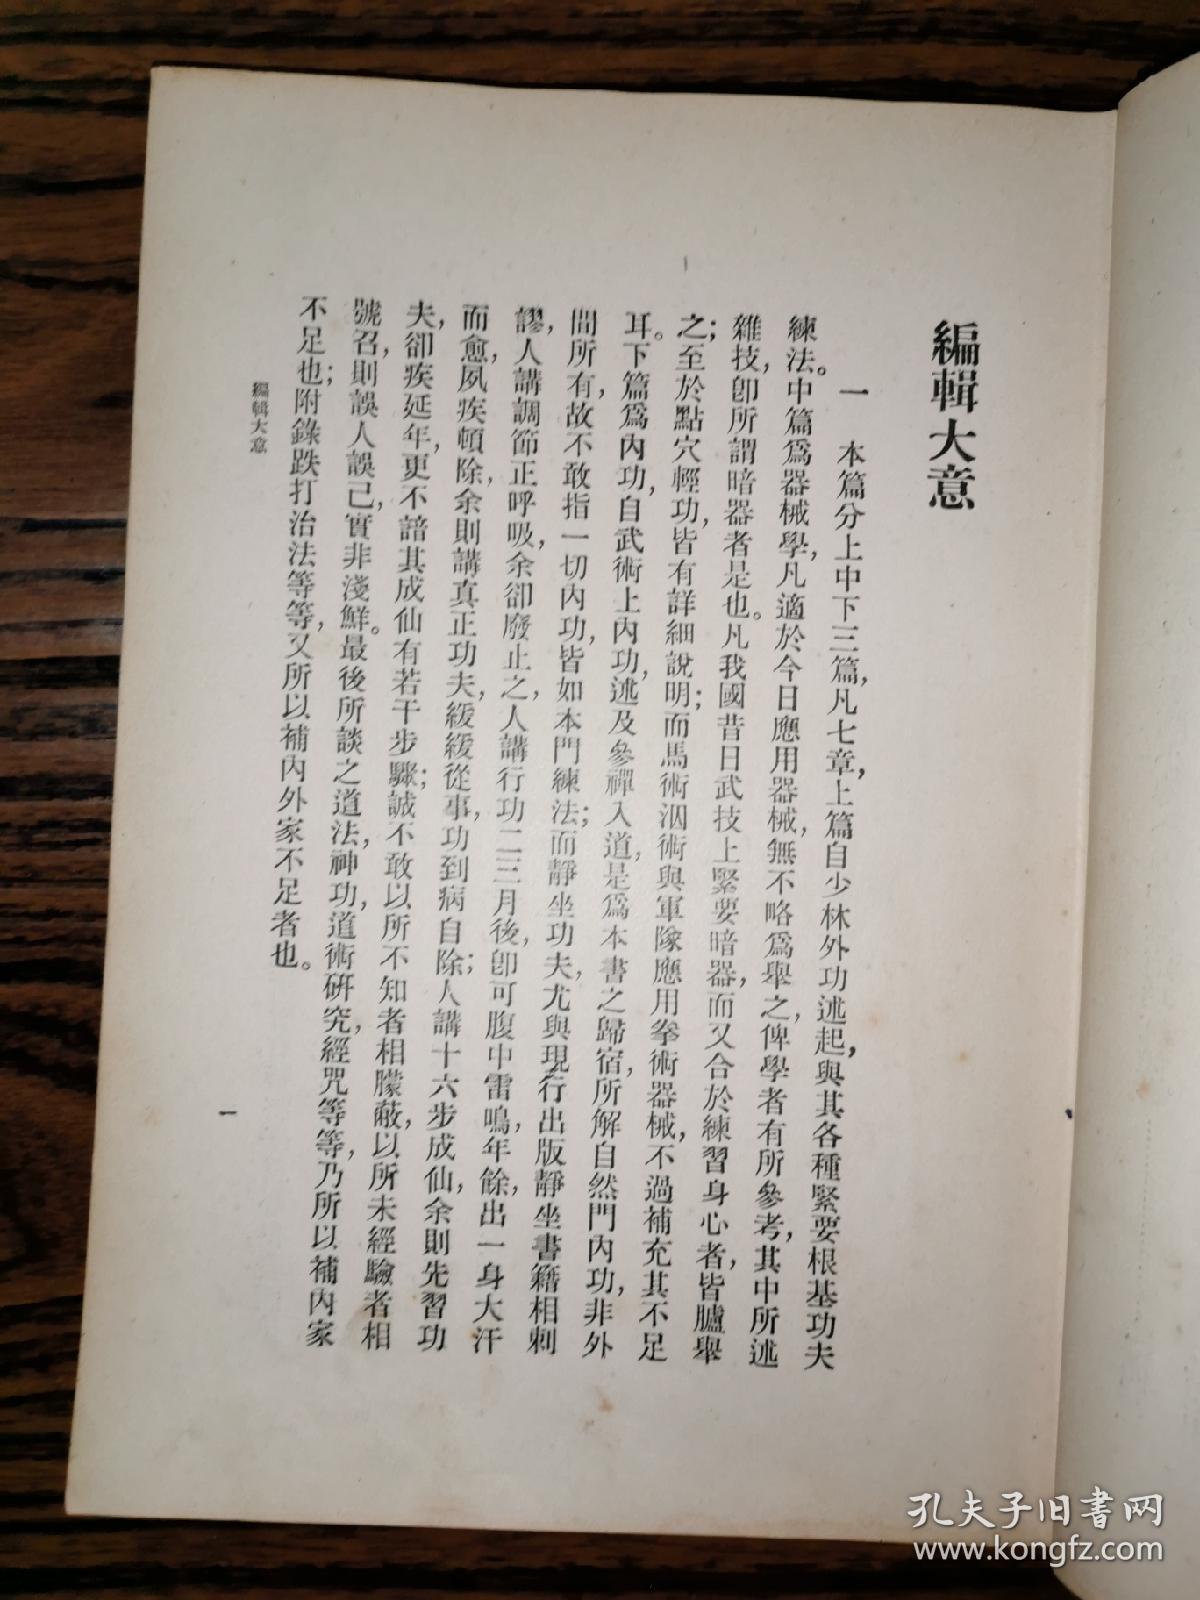 編輯大意
一　本篇分上中下三篇，凡七章，上篇自少林外功述起，與其各種緊要根基功夫
練法。中篇爲器械學，凡適於今日應用器械，無不略爲舉之，俾學者有所參考，其中所述
雜技，卽所謂暗器者是也。凡我國昔日武技上緊要暗器，而又合於練習身心者，皆臚舉
之；至於點穴輕功，皆有詳細說明；而馬術泅術與軍隊應用拳術器械，不過補充其不足
耳。下篇爲內功，自武術上內功，述及參禪入道，是爲本書之歸宿，所解自然門內功，非外
間所有，故不敢指一切內功，皆如本門練法；而靜坐功夫，尤與現行出版靜坐書籍相剌
謬，人講調節正呼吸，余卻廢止之，人講行功二三月後，卽可腹中雷鳴，年餘出一身大汗
而愈，夙疾頓除，余則講真正功夫，緩緩從事，功到病自除；人講十六步成仙，余則先習功
夫，卻疾延年，更不諳其成仙有若干步驟；誠不敢以所不知者相朦蔽，以所未經驗者相
號召，則誤人誤己，實非淺鮮。最後所談之道法，神功，道術研究，經咒等等，乃所以補內家
不足也；附錄跌打治法等等，又所以補內外家不足者也。
編輯大意
一
孔夫子旧书网
www.kongfz.com